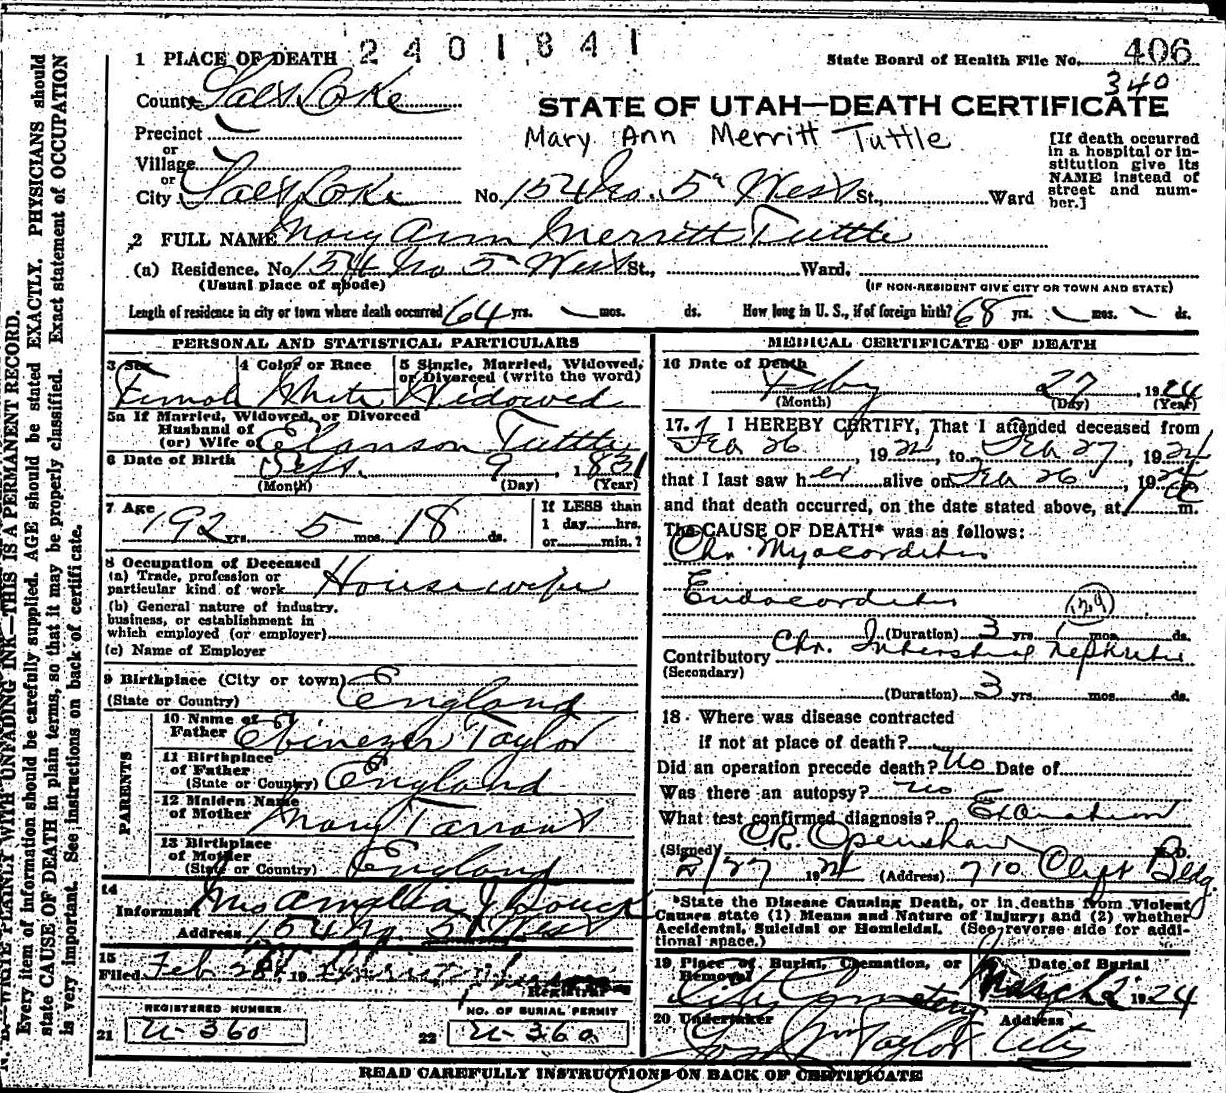 N. B.—WRITE PLAINLY WITH UNFADING INK—THIS IS A PERMANENT RECORD.
Every item of information should be carefully supplied. AGE should be stated EXACTLY. PHYSICIANS should
state CAUSE OF DEATH in plain terms, so that it may be properly classified. Exact statement of OCCUPATION
is very important. See instructions on back of certificate.
2401841
1 PLACE OF DEATH
State Board of Health File No. 406
340
County Salt Lake
STATE OF UTAH—DEATH CERTIFICATE
Mary Ann Merritt Tuttle
Precinct
or
Village
or
City Salt Lake No. 154 No. 5th West St., Ward
[If death occurred
in a hospital or in-
stitution give its
NAME instead of
street and num-
ber.]
2 FULL NAME Mary Ann Merritt Tuttle
(a) Residence. No. 154 No 5 West St., Ward.
(Usual place of abode)
(IF NON-RESIDENT GIVE CITY OR TOWN AND STATE)
Length of residence in city or town where death occurred 64 yrs. mos. ds. How long in U. S., if of foreign birth? 68 yrs. mos. ds.
PERSONAL AND STATISTICAL PARTICULARS
3 Sex 4 Color or Race 5 Single, Married, Widowed,
or Divorced (write the word)
Female White Widowed
5a If Married, Widowed, or Divorced
Husband of
(or) Wife of Elanson Tuttle
6 Date of Birth Sept. 9, 1831
(Month) (Day) (Year)
7 Age 92 yrs. 5 mos. 18 ds.
If LESS than
1 day hrs.
or min.?
8 Occupation of Deceased
(a) Trade, profession or
particular kind of work Housewife
(b) General nature of industry,
business, or establishment in
which employed (or employer)
(c) Name of Employer
9 Birthplace (City or town)
(State or Country) England
PARENTS
10 Name of
Father Ebinezer Taylor
11 Birthplace
of Father
(State or Country) England
12 Maiden Name
of Mother Mary Tarrant
13 Birthplace
of Mother
(State or Country) England
14
Informant Mrs Amellia J
Address 154 No. 5th West
15
Filed Feb 28 19
Registrar
REGISTERED NUMBER
21 U-360
NO. OF BURIAL PERMIT
22 U-360
MEDICAL CERTIFICATE OF DEATH
16 Date of Death
Feby 27 1924
(Month) (Day) (Year)
17. I HEREBY CERTIFY, That I attended deceased from
Feb 26, 1924, to Feb 27, 1924
that I last saw her alive on Feb 26, 1924
and that death occurred, on the date stated above, at m.
The CAUSE OF DEATH* was as follows:
Chr. Myocorditis
Endocorditis
(Duration) 3 yrs. 1 mos. ds.
Contributory Chr. Interstitial Nephritis
(Secondary)
(Duration) 3 yrs. mos. ds.
18 Where was disease contracted
if not at place of death?
Did an operation precede death? No Date of
Was there an autopsy? no
What test confirmed diagnosis?
(Signed) C.R. Openshaw M. D.
2/27 1924 (Address) 710 Clift Bldg.
*State the Disease Causing Death, or in deaths from Violent
Causes state (1) Means and Nature of Injury; and (2) whether
Accidental, Suicidal or Homicidal. (See reverse side for addi-
tional space.)
19 Place of Burial, Cremation, or
Removal
Date of Burial
City Cemetery March 2 1924
20 Undertaker Address
Jos. Wm Taylor City
READ CAREFULLY INSTRUCTIONS ON BACK OF CERTIFICATE